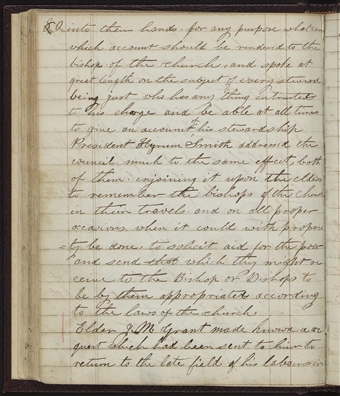 80 into their hands. for any purpose whatever
which account should be rendered to the
bishop of the church, and spoke at
great length on the subject of every steward
being just who has any thing intrusted
to his charge and be able at all times
to give an account his stewardship
President Hyrum Smith addressed the
council much to the same effect, both
of them enjoining it upon the elders
to remember the bishops of the church
in their travels and on all proper
occasions when it could with propri
=ty be done to solicit aid for the poor
and send that which they might re
ceive to the Bishop or Bishops to
be by them appropriated according
to the laws of the church
Elder J.M. Grant made known a re
quest which had been sent to him to
return to the late field of his labours in